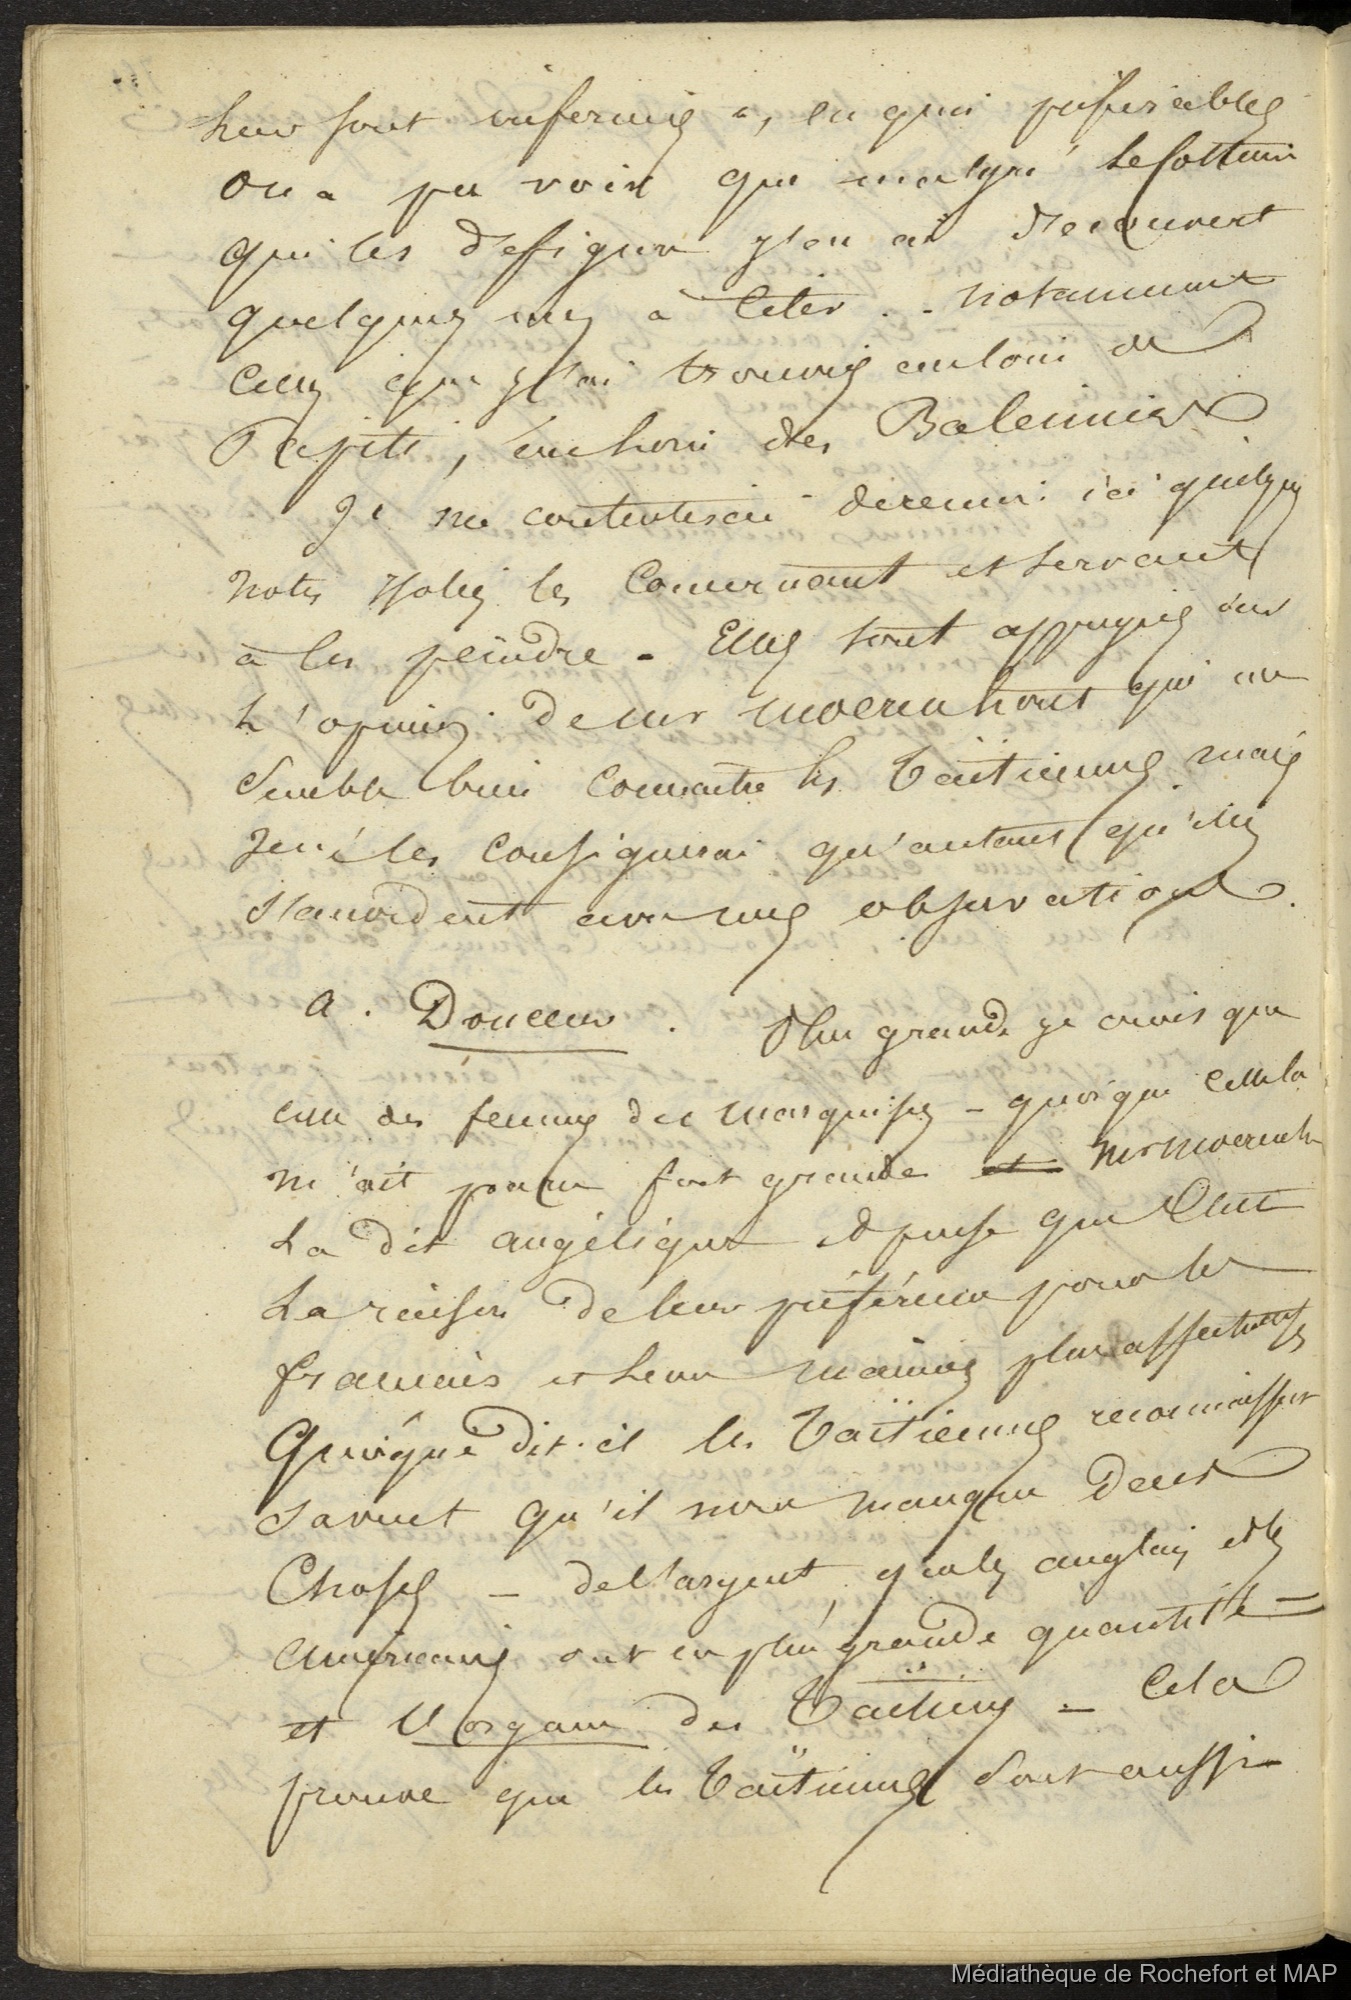 leur sont inférieurs, en quoi préférables
on a pu voir que malgré le costume
qui les défigure j'en ai découvert
quelques unes à citer .. notamment
celles que j'ai trouvées au loin de
Papiti, au home des Baleiniers
Je me contenterai de réunir ici quelques
notes isolées les concernant et servant
à les peindre - Elles sont appuyées sur
l'opinion de Mr Moerenhout qui me
semble bien connaitre les Taïtiennes mais
je ne les consignerai qu'autant qu'elles
s'accordent avec mes observations.
a. Douceur. Plus grande je crois que
celle des femmes des Marquises - quoique celle là
m'ait paru fort grande et Mr Moerenh
la dit angélique et pense que c'est
la raison de leur préférence pour les
français et leurs manières plus affectueuses
Quoique dit-il les Taïtiennes reconnaissent
savent qu'il nous manque deux
choses - de l'argent, que les anglais et les
américains ont en plus grande quantité -
et l'organe des Taïtiens - Cela
prouve que les Taïtiennes sont aussi
Médiathèque de Rochefort et MAP